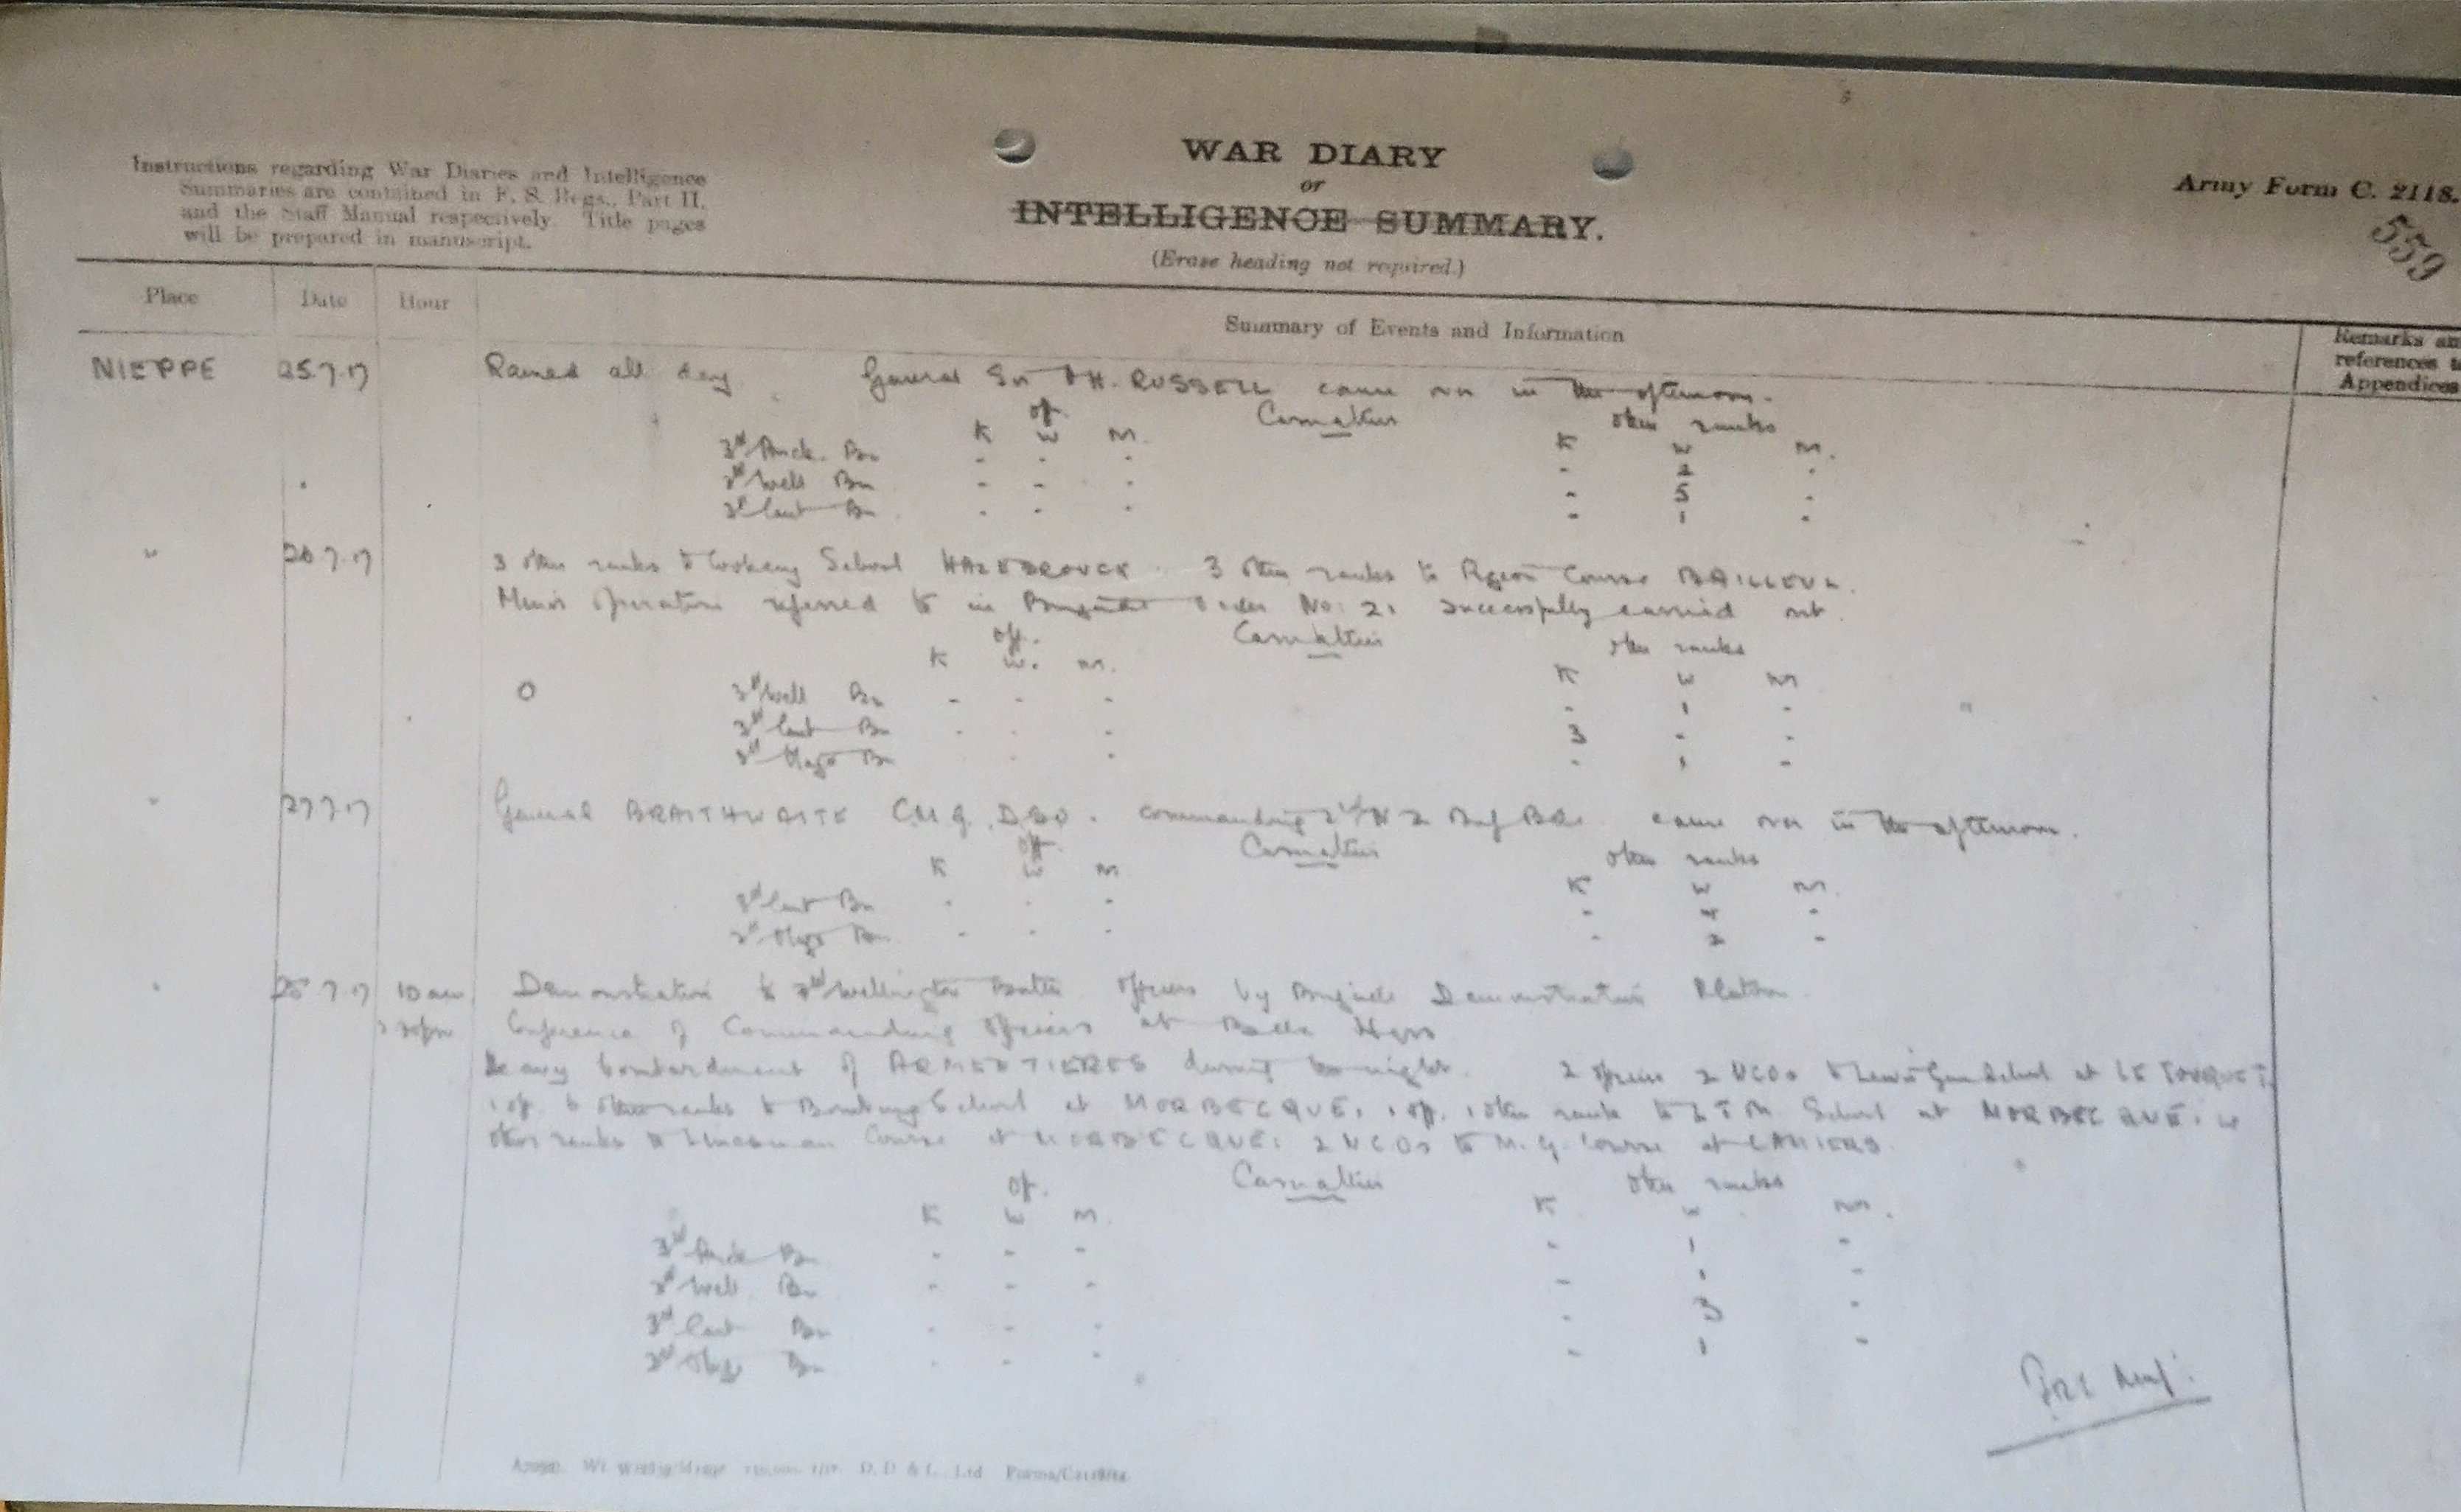 WAR DIARY
or
INTELLIGENCE SUMMARY.
(Erase heading not required.)
Instructions regarding War Diaries and Intelligence
Summaries are contained in F. S. Regs., Part II.
and the Staff Manual respectively. Title pages
will be prepared in manuscript.
Army Form C. 2118.
559
Place Date Hour Summary of Events and Information Remarks an
references t
Appendices
NIEPPE 25.7.17 Rained all day. General Sir A H. RUSSELL came over in the afternoon.
off Casualties other ranks
K W M. K W M.
3rd Auck. Bn - - - - 2 -
3rd Well Bn - - - - 5 -
3rd Cant Bn - - - - 1 -
" 26.7.17 3 other ranks to Cooking School HAZEBROUCK. 3 other ranks to Pigeon Course BAILLEUL.
Minor Operation referred to in Brigade Order No: 21 successfully carried out.
off. Casualties other ranks
K W. M. K W M
3rd Well Bn - - - - 1 -
3rd Cant Bn - - - 3 - -
3rd Otago Bn - - - 1 -
" 27.7.17 General BRAITHWAITE C.M.G. D.S.O. commanding 2nd N Z Inf Bde came over in the afternoon.
off Casualties other ranks
K W M K W M.
3rd Cant Bn - - - - 4 -
3rd Otago Bn - - - - 2 -
" 28.7.17 10 am Demonstration to 3rd Wellington Battn Officers by Brigade Demonstration Platoon.
30pm Conference of Commanding Officers at Bde Hqrs
Heavy bombardment of ARMENTIERES during the night. 2 officers 2 NCOs to Lewis Gun School at LE TOUQUET.
1 off. 6 other ranks to Bombing School at MORBECQUE. 1 off. 1 other rank to L T M. School at MORBECQUE.
other ranks to Course at MORBECQUE. 2 NCOs to M. G. Course at CAMIERS.
off. Casualties other ranks
K W M. K W M.
3rd Auck Bn - - - - 1 -
3rd Well. Bn - - - - 1 -
3rd Cant Bn - - - - 3 -
3rd Otago Bn - - - - 1 -
D. D & L., Ltd